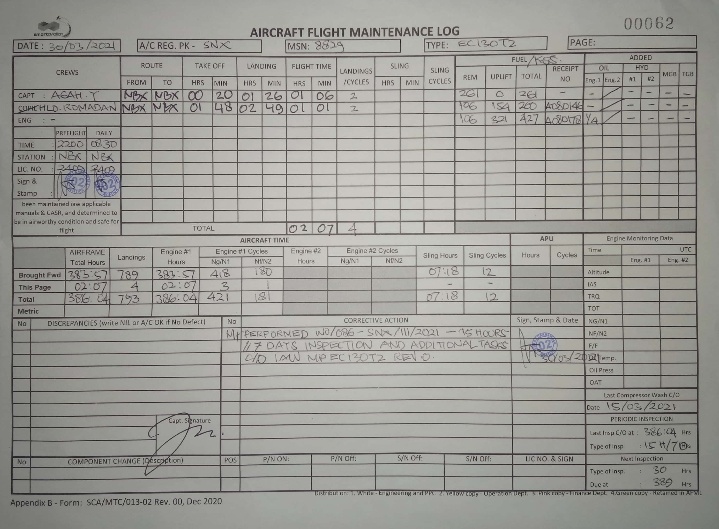 AIRCRAFT FLIGHT MAINTENANCE LOG 00062
DATE: 30/03/2021 A/C REG. PK - SNX MSN: 8829 TYPE: EC130T2 PAGE:
CREWS ROUTE TAKE OFF LANDING FLIGHT TIME LANDINGS /CYCLES SLING SLING CYCLES FUEL/KGS ADDED
FROM TO HRS MIN HRS MIN HRS MIN HRS MIN REM UPLIFT TOTAL RECEIPT NO OIL HYD MGB TGB
Eng.1 Eng.2 #1 #2
CAPT : AGAH.Y NBX NBX 00 20 01 26 01 06 2 261 0 261 -
ROMADAN NBX NBX 01 48 02 49 01 01 2 106 154 260
ENG : - 106 321 427
PREFLIGHT DAILY
TIME 2200 08.30
STATION : NBX NBX
LIC NO :
Sign & Stamp :
been maintained iaw applicable manuals & CASR, and determined to be in airworthy condition and safe for flight
TOTAL 02 07 4
AIRCRAFT TIME APU Engine Monitoring Data
AIRFRAME Total Hours Landings Engine #1 Hours Engine #1 Cycles Engine #2 Hours Engine #2 Cycles Sling Hours Sling Cycles Hours Cycles Time UTC
Ng/N1 Nf/N2 Ng/N1 Nf/N2 Eng. #1 Eng. #2
Brought Fwd 383:57 789 383:57 418 180 07:18 12 Altitude
This Page 02:07 4 02:07 3 1 - - IAS
Total 386:04 793 386:04 421 181 07.18 12 TRQ
Metric TOT
No DISCREPANCIES (write NIL or A/C OK if No Defect) No CORRECTIVE ACTION Sign, Stamp & Date NG/N1
PERFORMED WO/086 - SNX/III/2021 - 15 HOURS NF/N2
/7 DAYS INSPECTION AND ADDITIONAL TASKS F/F
C/O IAW MP EC130T2 REV 0. 30/03/2021 Temp.
Oil Press
OAT
Last Compressor Wash C/O
Date 15/03/2021
Capt. Signature
PERIODIC INSPECTION
Last Insp C/O at : 386:04 Hrs
Type of Insp. : 15 H/7D
No COMPONENT CHANGE (Description) POS P/N ON: P/N Off: S/N Off: S/N Off: LIC NO. & SIGN Next Inspection
Type of Insp. : 30 Hrs
Due at : 389 Hrs
Distribution: 1. White - Engineering and PPC 2. Yellow copy - Operation Dept. 3. Pink copy - Finance Dept. 4. Green copy - Retained in
Appendix B - Form: SCA/MTC/013-02 Rev. 00, Dec 2020